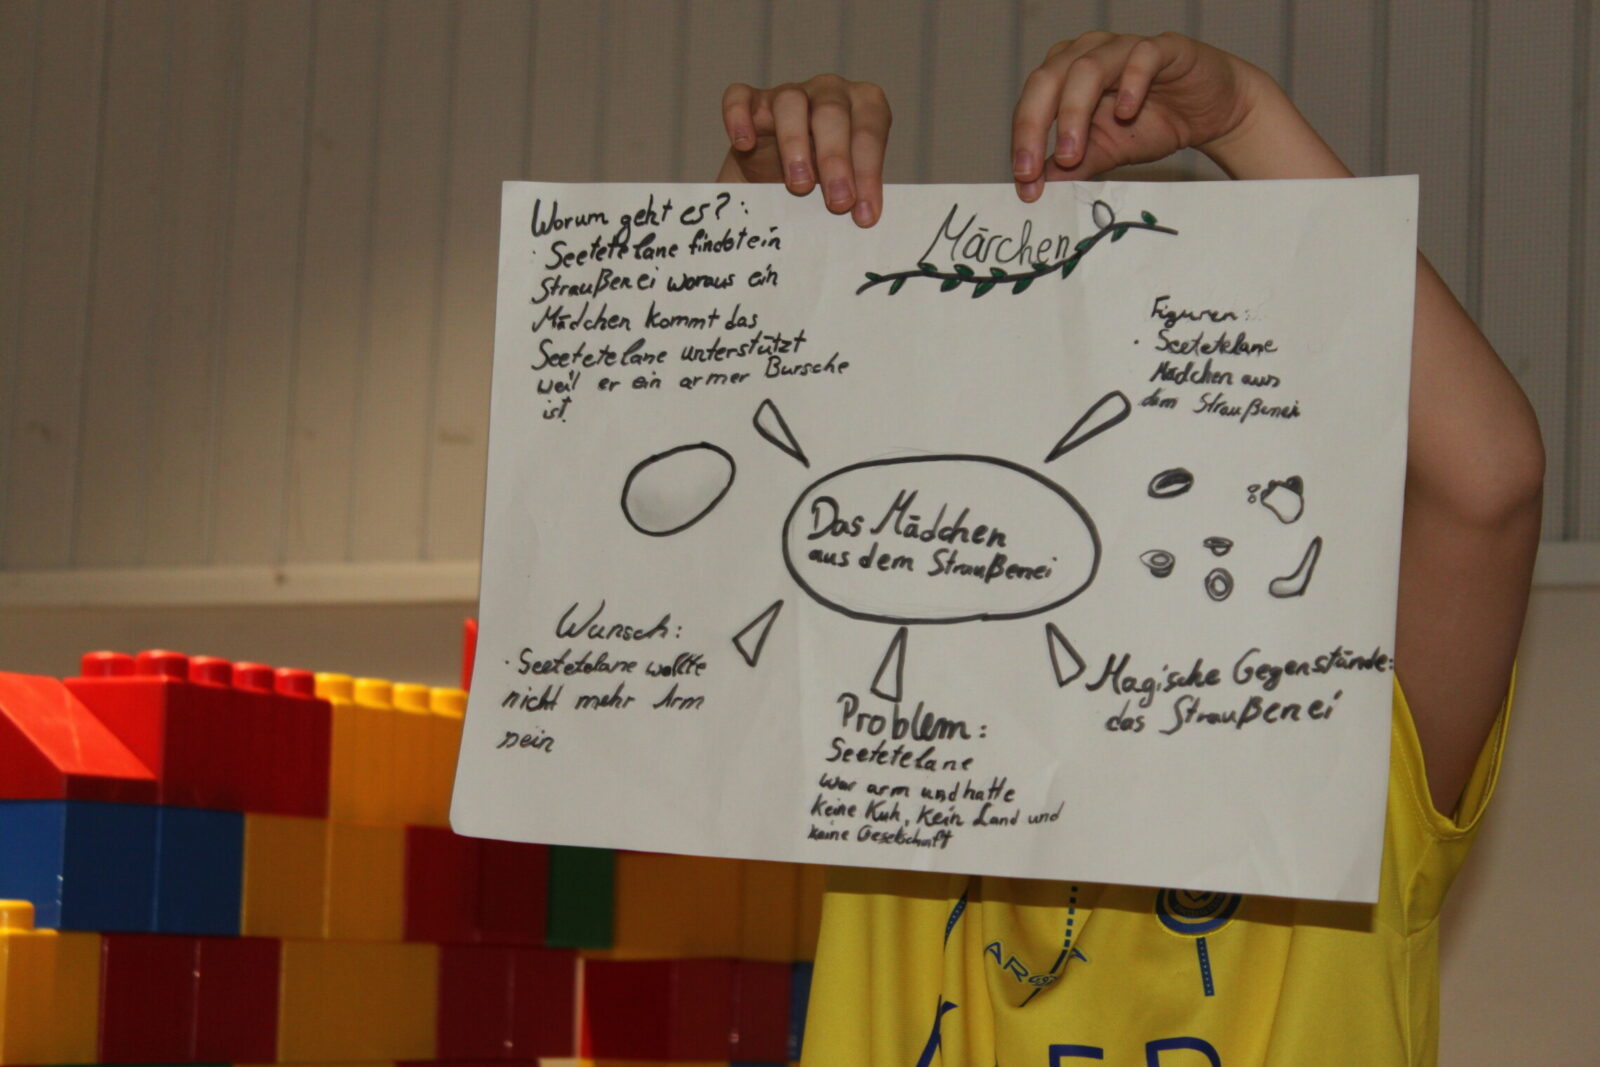 Worum geht es?:
· Seetetelane findet ein
Straußenei woraus ein
Mädchen kommt das
Seetetelane unterstützt
weil er ein armer Bursche
ist.
Märchen
Figuren:
· Seetetelane
Mädchen aus
dem Straußenei
Das Mädchen
aus dem Straußenei
Wunsch:
· Seetetelane wollte
nicht mehr Arm
sein
Problem:
Seetetelane
war arm und hatte
keine Kuh, kein Land und
keine Gesellschaft
Magische Gegenstände:
das Straußenei